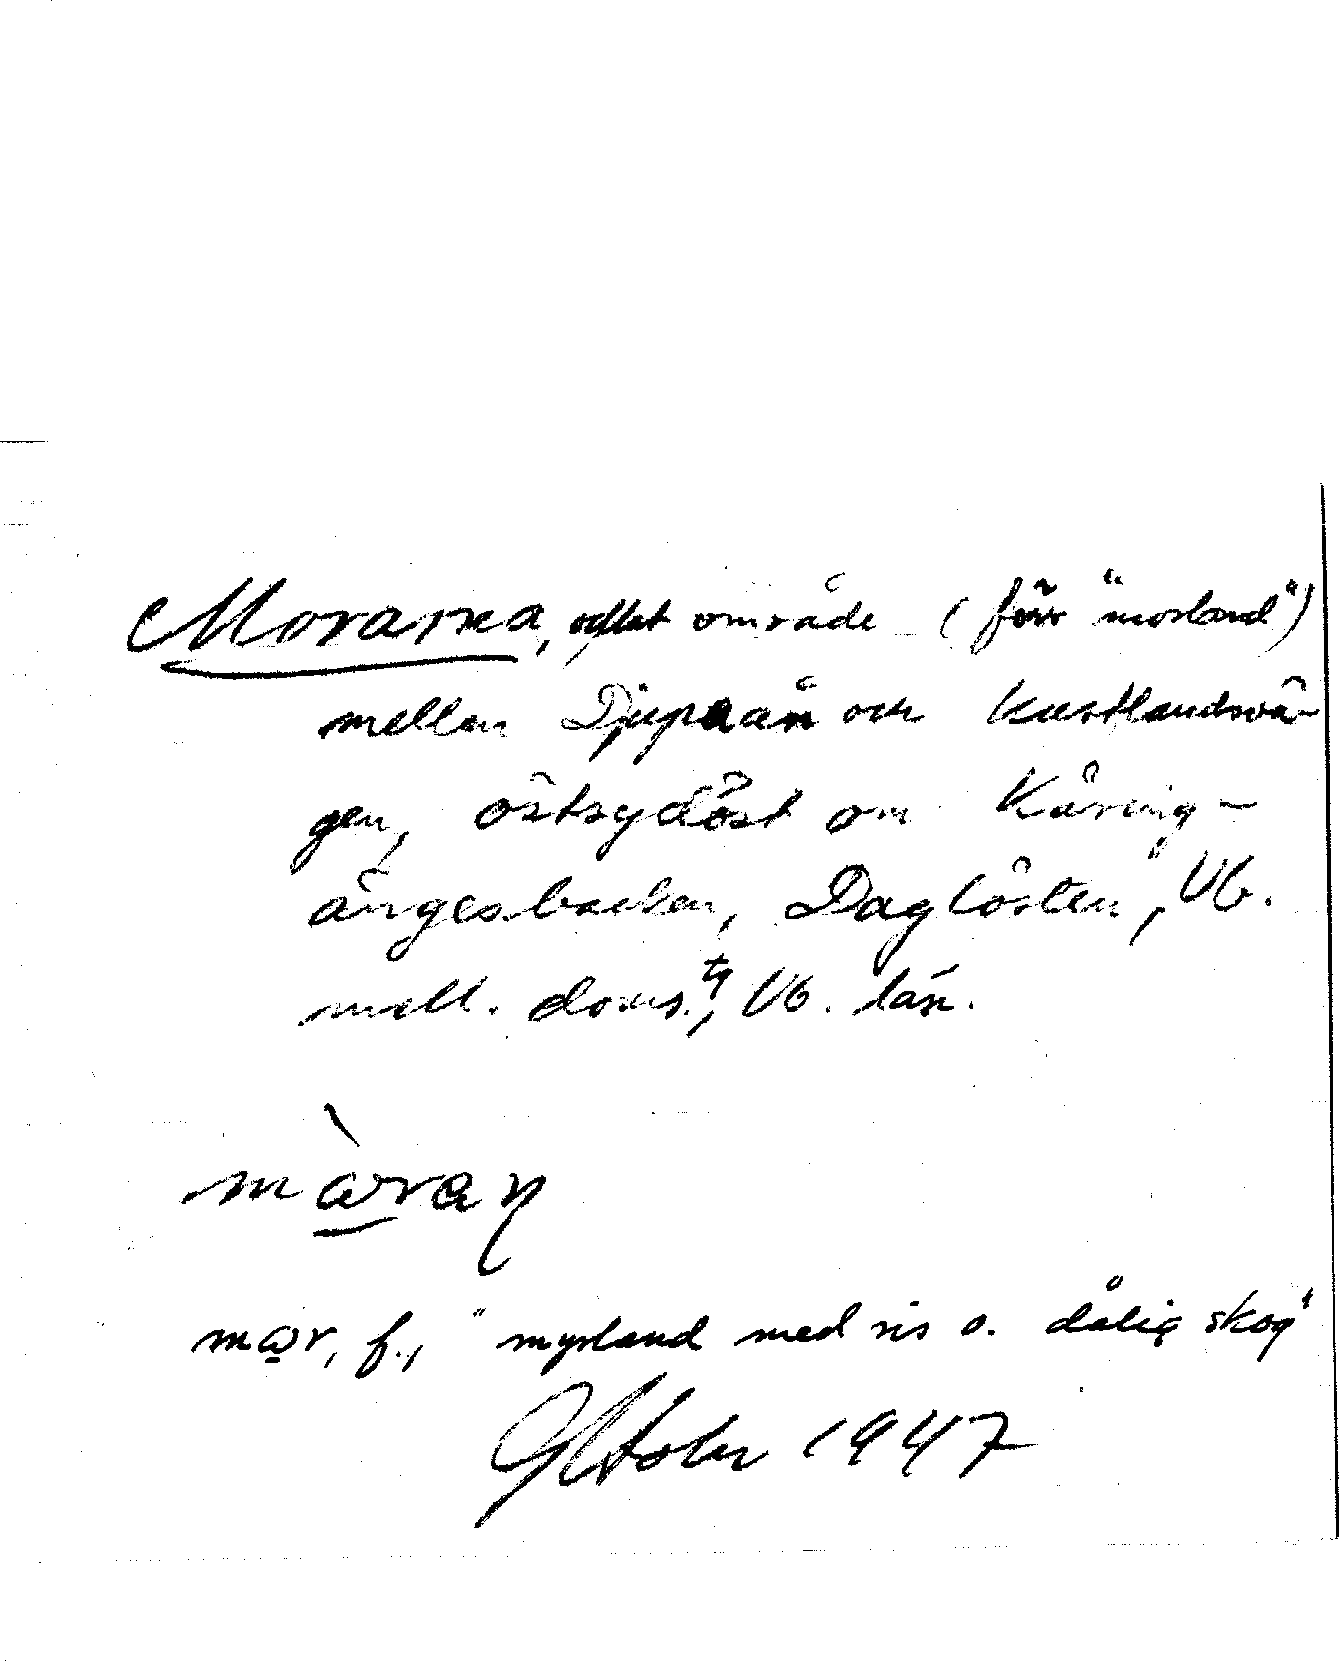 Morarna, odlat område (förr "morland")
mellan Djupaån och kustlandsvä-
gen, ostsydöst om Käring-
ängesbacken, Daglösten, Vb.
mell. doms. tg, Vb. län.
mòran
mor, f., "myrland med ris o. dålig skog"
1947